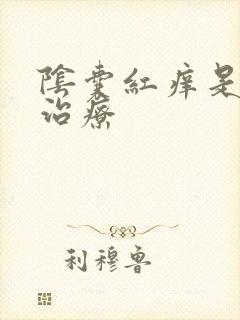 陰囊紅痒是
治療
利穆魯